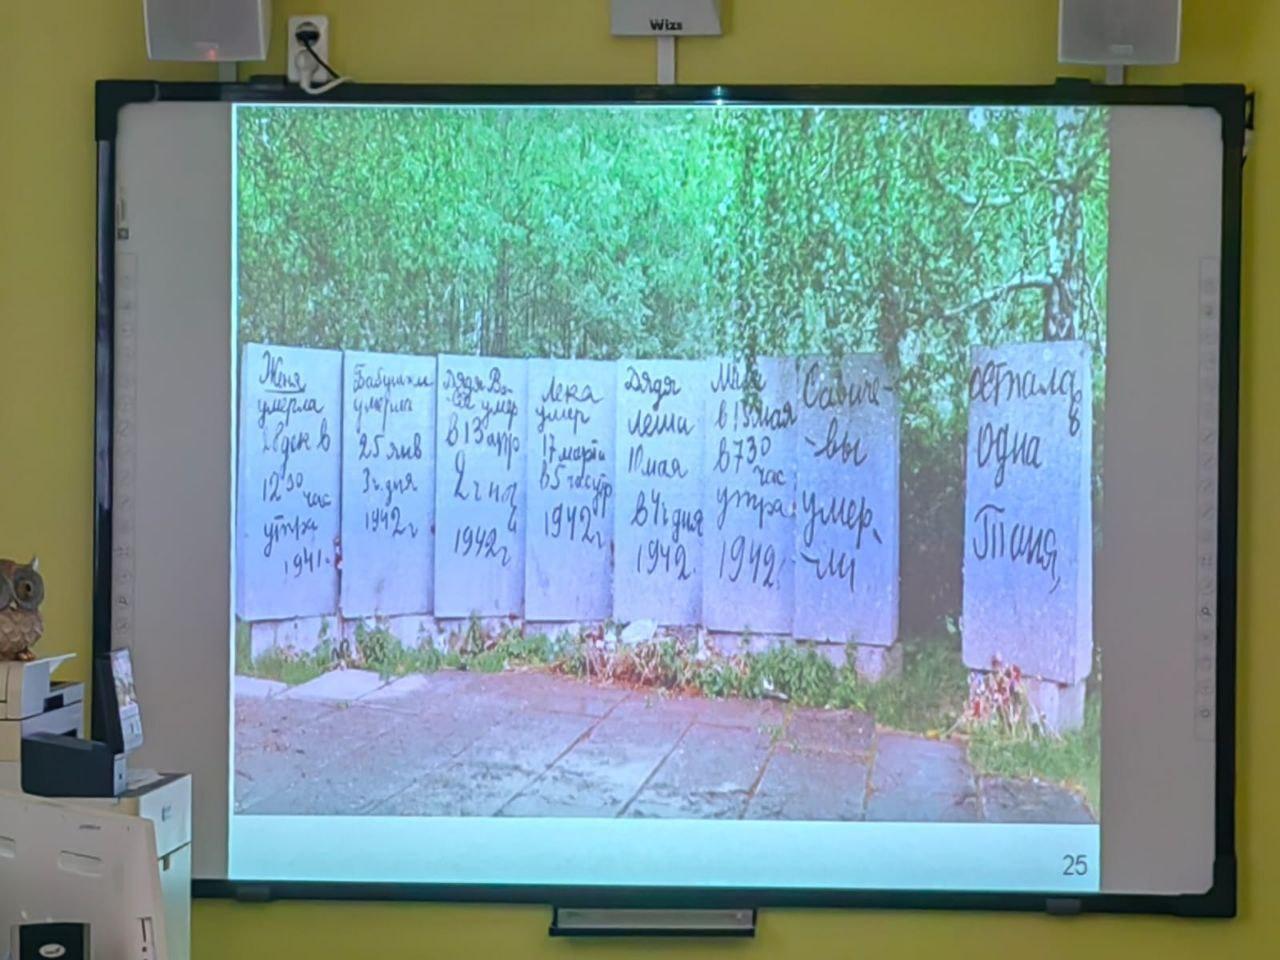 Wizs
Женя
умерла
28 дек в
12 30 час
утра
1941г.
Бабушка
умерла
25 янв
3ч. дня
1942г
Дядя Ва-
ся умер
в 13 апр
2ч ноч
1942г
Лека
умер
17 марта
в 5 час утр
1942г.
Дядя
Леша
10 мая
в 4ч дня
1942.
Мама
в 13 мая
в 7 30
час
утра
1942г
Савиче-
-вы
умер-
-ли
осталась
одна
Таня,
25